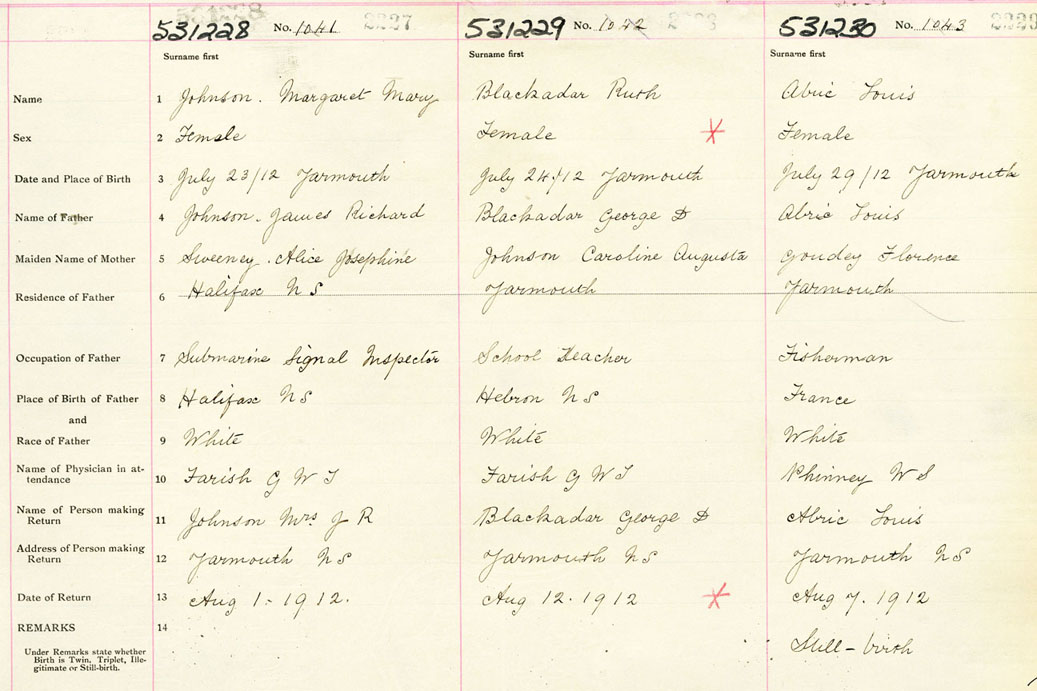 531228 No. 1041 2227 531229 No. 1042 531230 No. 1043
Surname first Surname first Surname first
Name 1 Johnson. Margaret Mary Blackadar Ruth Abric Louis
Sex 2 Female Female Female
Date and Place of Birth 3 July 23/12 Yarmouth July 24/12 Yarmouth July 29/12 Yarmouth
Name of Father 4 Johnson. James Richard Blackadar George D Abric Louis
Maiden Name of Mother 5 Sweeney. Alice Josephine Johnson Caroline Augusta Goudey Florence
Residence of Father 6 Halifax N S Yarmouth Yarmouth
Occupation of Father 7 Submarine Signal Inspector School Teacher Fisherman
Place of Birth of Father 8 Halifax N S Hebron N S France
and
Race of Father 9 White White White
Name of Physician in at-
tendance 10 Farish G W T Farish G W T Phinney W S
Name of Person making
Return 11 Johnson Mrs J R Blackadar George D Abric Louis
Address of Person making
Return 12 Yarmouth N S Yarmouth N S Yarmouth N S
Date of Return 13 Aug 1 - 1912. Aug 12. 1912 Aug 7. 1912
REMARKS 14 Still-birth
Under Remarks state whether
Birth is Twin, Triplet, Ille-
gitimate or Still-birth.